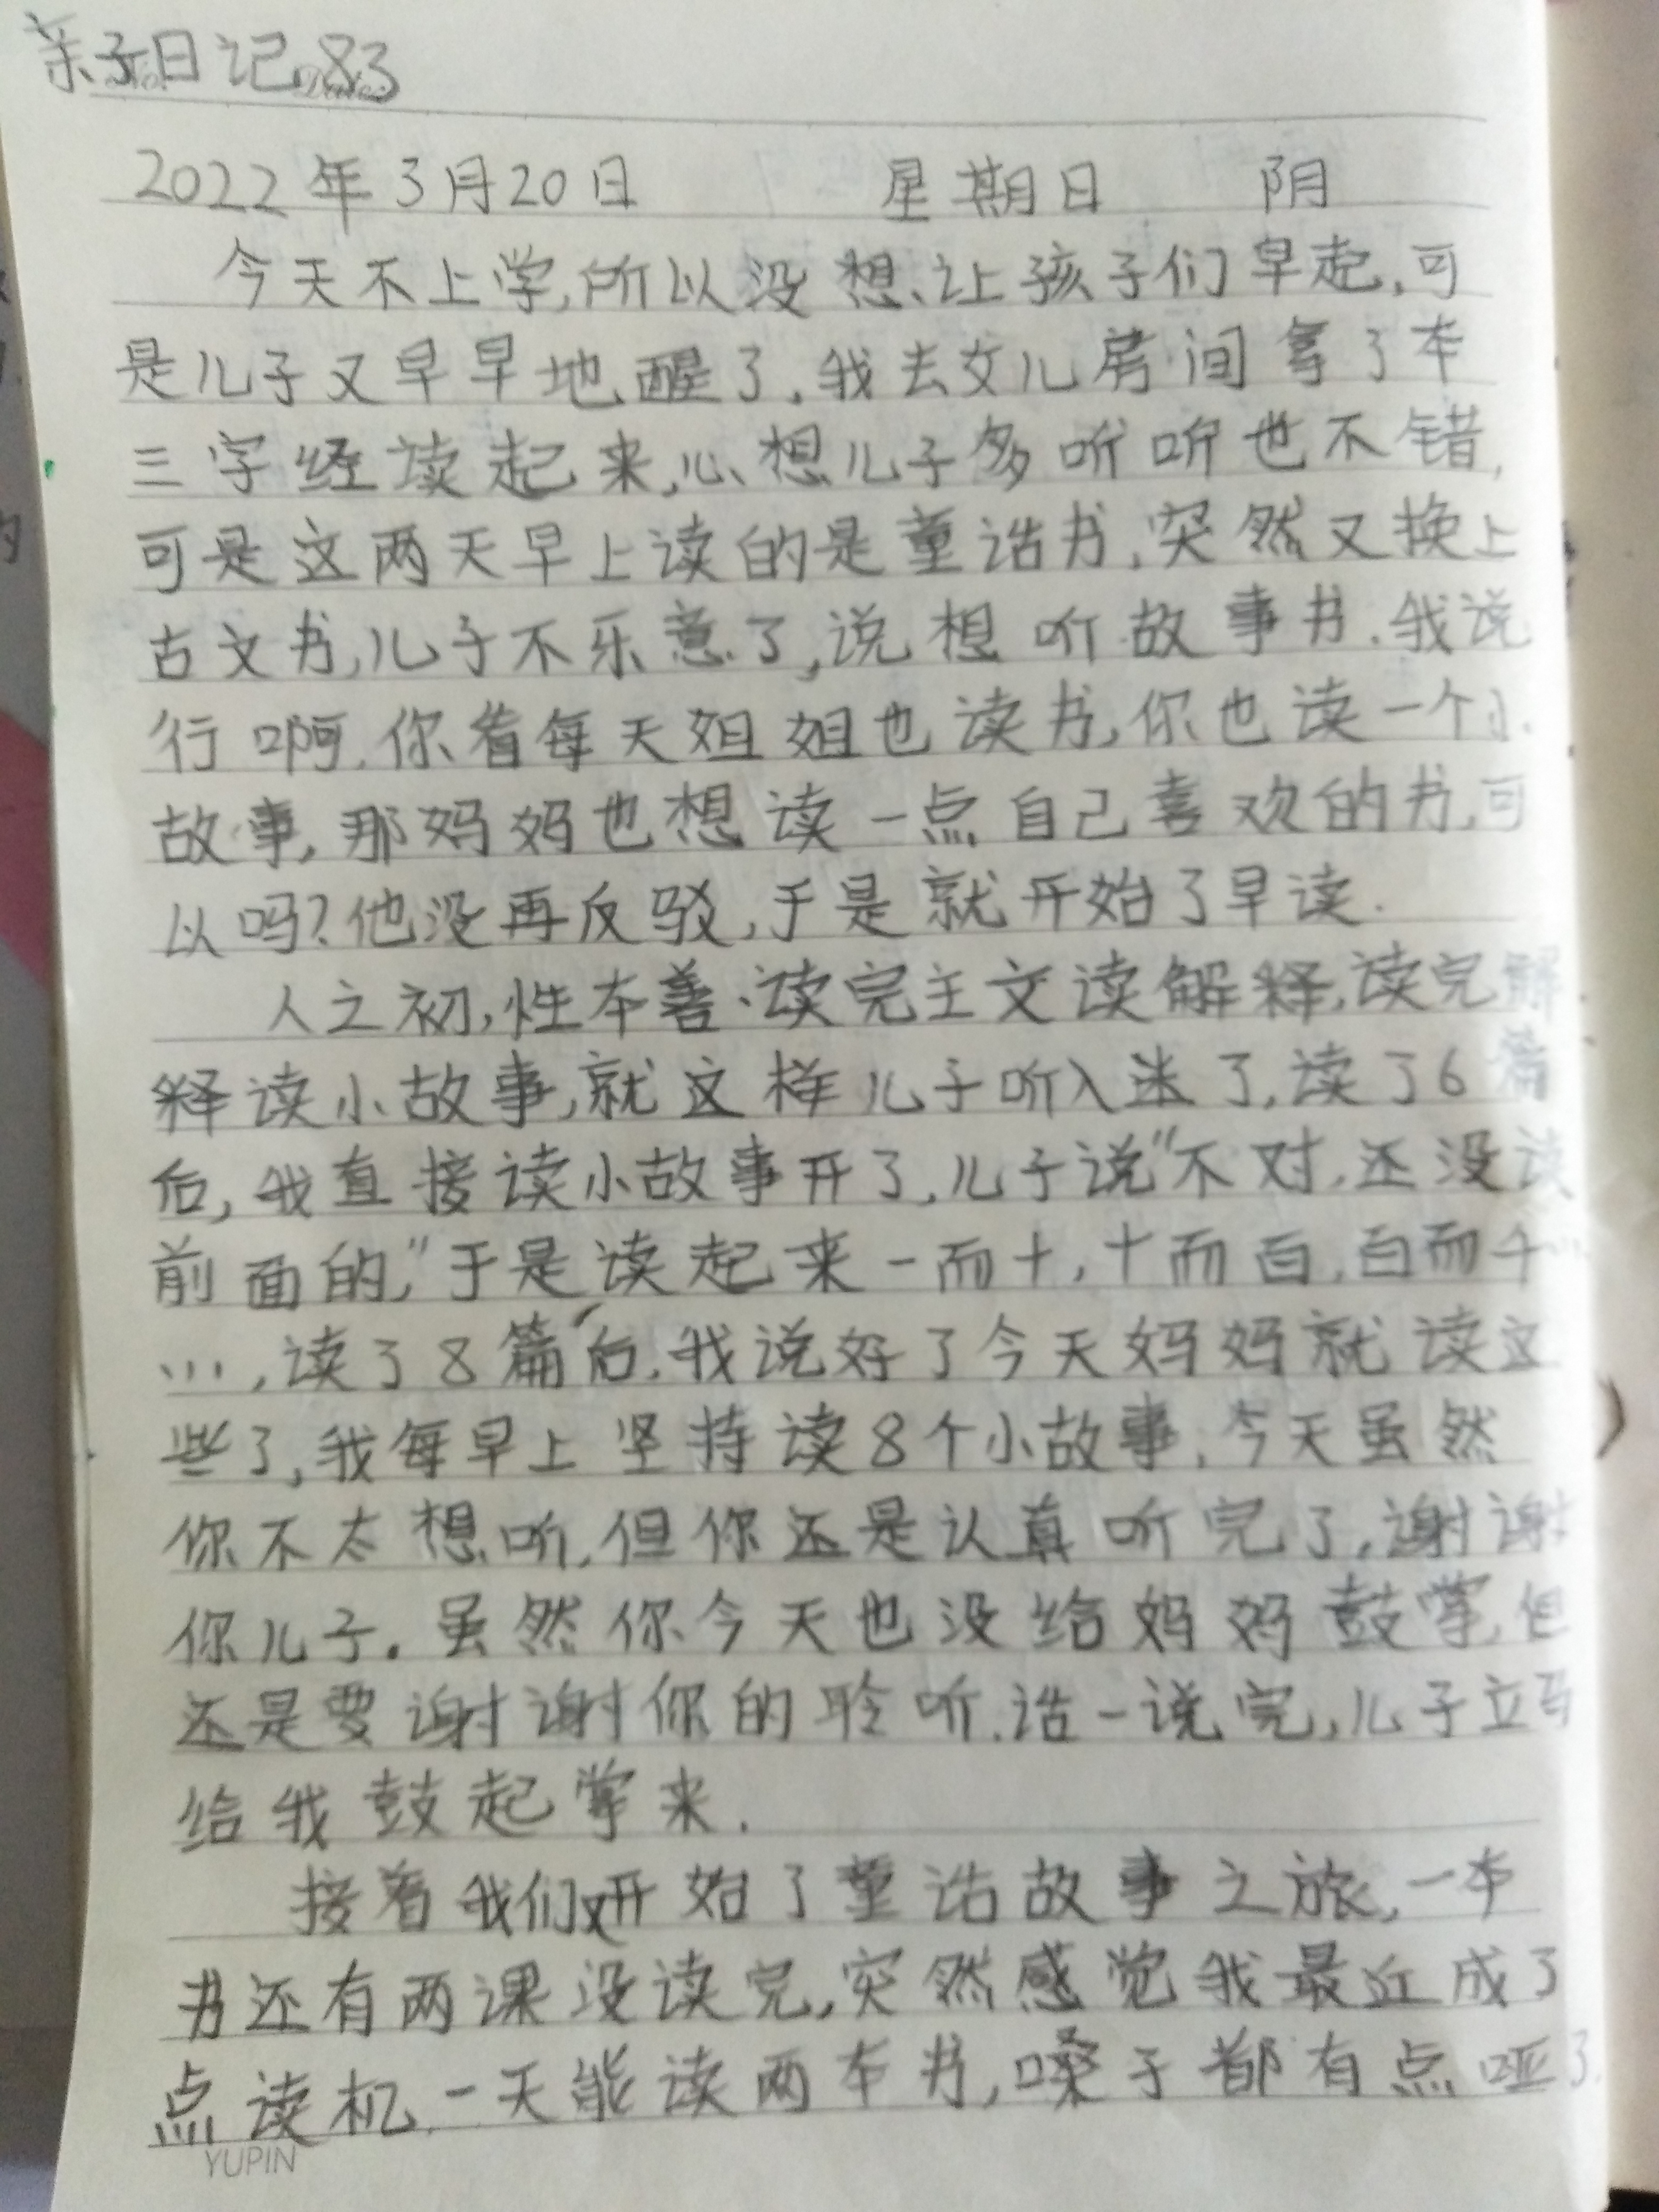 亲子日记83
2022年3月20日 星期日 阴
今天不上学,所以没想让孩子们早起,可
是儿子又早早地醒了.我去女儿房间拿了本
三字经读起来,心想儿子多听听也不错,
可是这两天早上读的是童话书,突然又换上
古文书,儿子不乐意了,说想听故事书.我说
行啊.你看每天姐姐也读书,你也读一个小
故事,那妈妈也想读一点自己喜欢的书,可
以吗?他没再反驳,于是就开始了早读.
人之初,性本善.读完主文读解释,读完解
释读小故事,就这样儿子听入迷了,读了6篇
后,我直接读小故事开了,儿子说"不对,还没读
前面的,"于是读起来一而十,十而百,百而千
...,读了8篇后,我说好了今天妈妈就读这
些了,我每早上坚持读8个小故事,今天虽然
你不太想听,但你还是认真听完了,谢谢
你儿子.虽然你今天也没给妈妈鼓掌,但
还是要谢谢你的聆听.话一说完,儿子立马
给我鼓起掌来.
接着我们又开始了童话故事之旅,一本
书还有两课没读完,突然感觉我最近成了
点读机.一天能读两本书,嗓子都有点哑了.
YUPIN